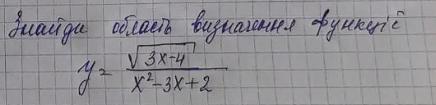 Знайди область визначення функції
y = √(3x-4) / (x²-3x+2)